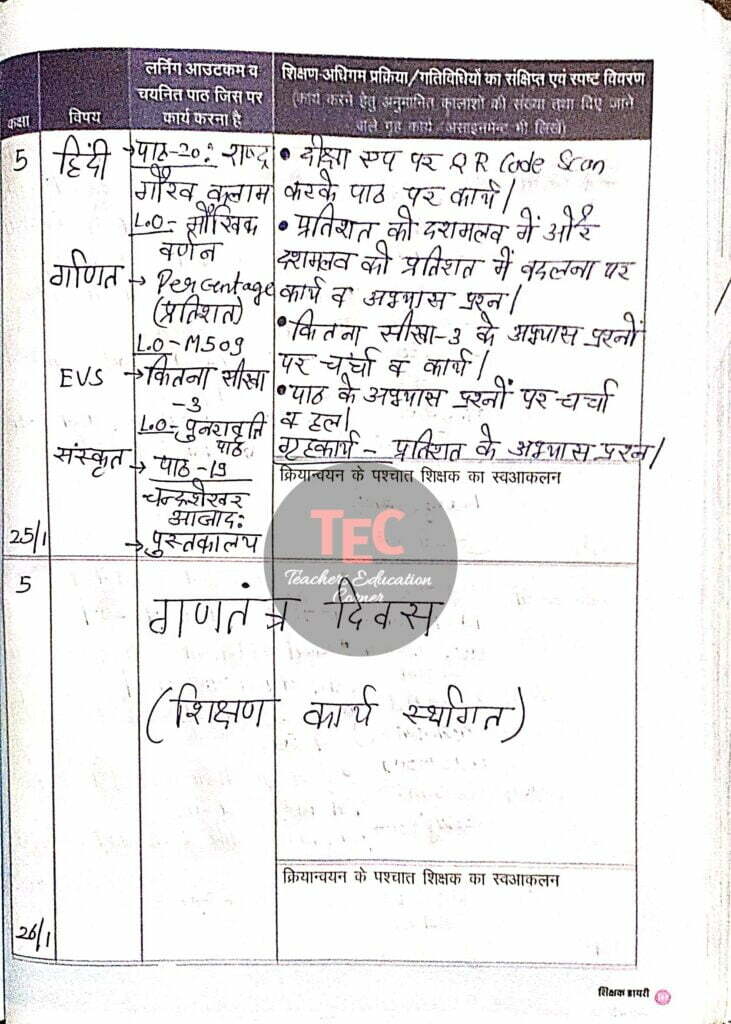 कक्षा
विषय
लर्निंग आउटकम व
चयनित पाठ जिस पर
कार्य करना है
शिक्षण-अधिगम प्रक्रिया/गतिविधियों का संक्षिप्त एवं स्पष्ट विवरण
(कार्य करने हेतु अनुमानित कालांशों की संख्या तथा दिए जाने
वाले गृह कार्य/असाइनमेन्ट भी लिखें)
5
हिंदी
→पाठ-20: राष्ट्र
गौरव कलाम
L.O- मौखिक
वर्णन
गणित
→ Percentage
(प्रतिशत)
L.O-M509
EVS
→कितना सीखा
-3
L.O- पुनरावृत्ति
पाठ
संस्कृत
→ पाठ-19
चन्द्रशेखर
आजाद:
→ पुस्तकालय
25/1
• दीक्षा एप पर QR Code Scan
करके पाठ पर कार्य।
• प्रतिशत को दशमलव में और
दशमलव को प्रतिशत में बदलना पर
कार्य व अभ्यास प्रश्न।
• कितना सीखा-3 के अभ्यास प्रश्नों
पर चर्चा व कार्य।
• पाठ के अभ्यास प्रश्नों पर चर्चा
व हल।
गृहकार्य - प्रतिशत के अभ्यास प्रश्न।
क्रियान्वयन के पश्चात शिक्षक का स्वआकलन
TEC
Teachers Education
Corner
5
गणतंत्र दिवस
(शिक्षण कार्य स्थगित)
क्रियान्वयन के पश्चात शिक्षक का स्वआकलन
26/1
शिक्षक डायरी